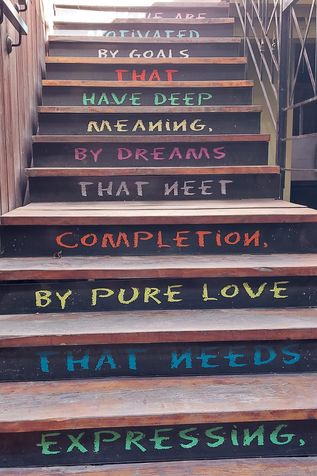 WE ARE
MOTIVATED
BY GOALS
THAT
HAVE DEEP
MEANING,
BY DREAMS
THAT NEET
COMPLETION,
BY PURE LOVE
THAT NEEDS
EXPRESSING,